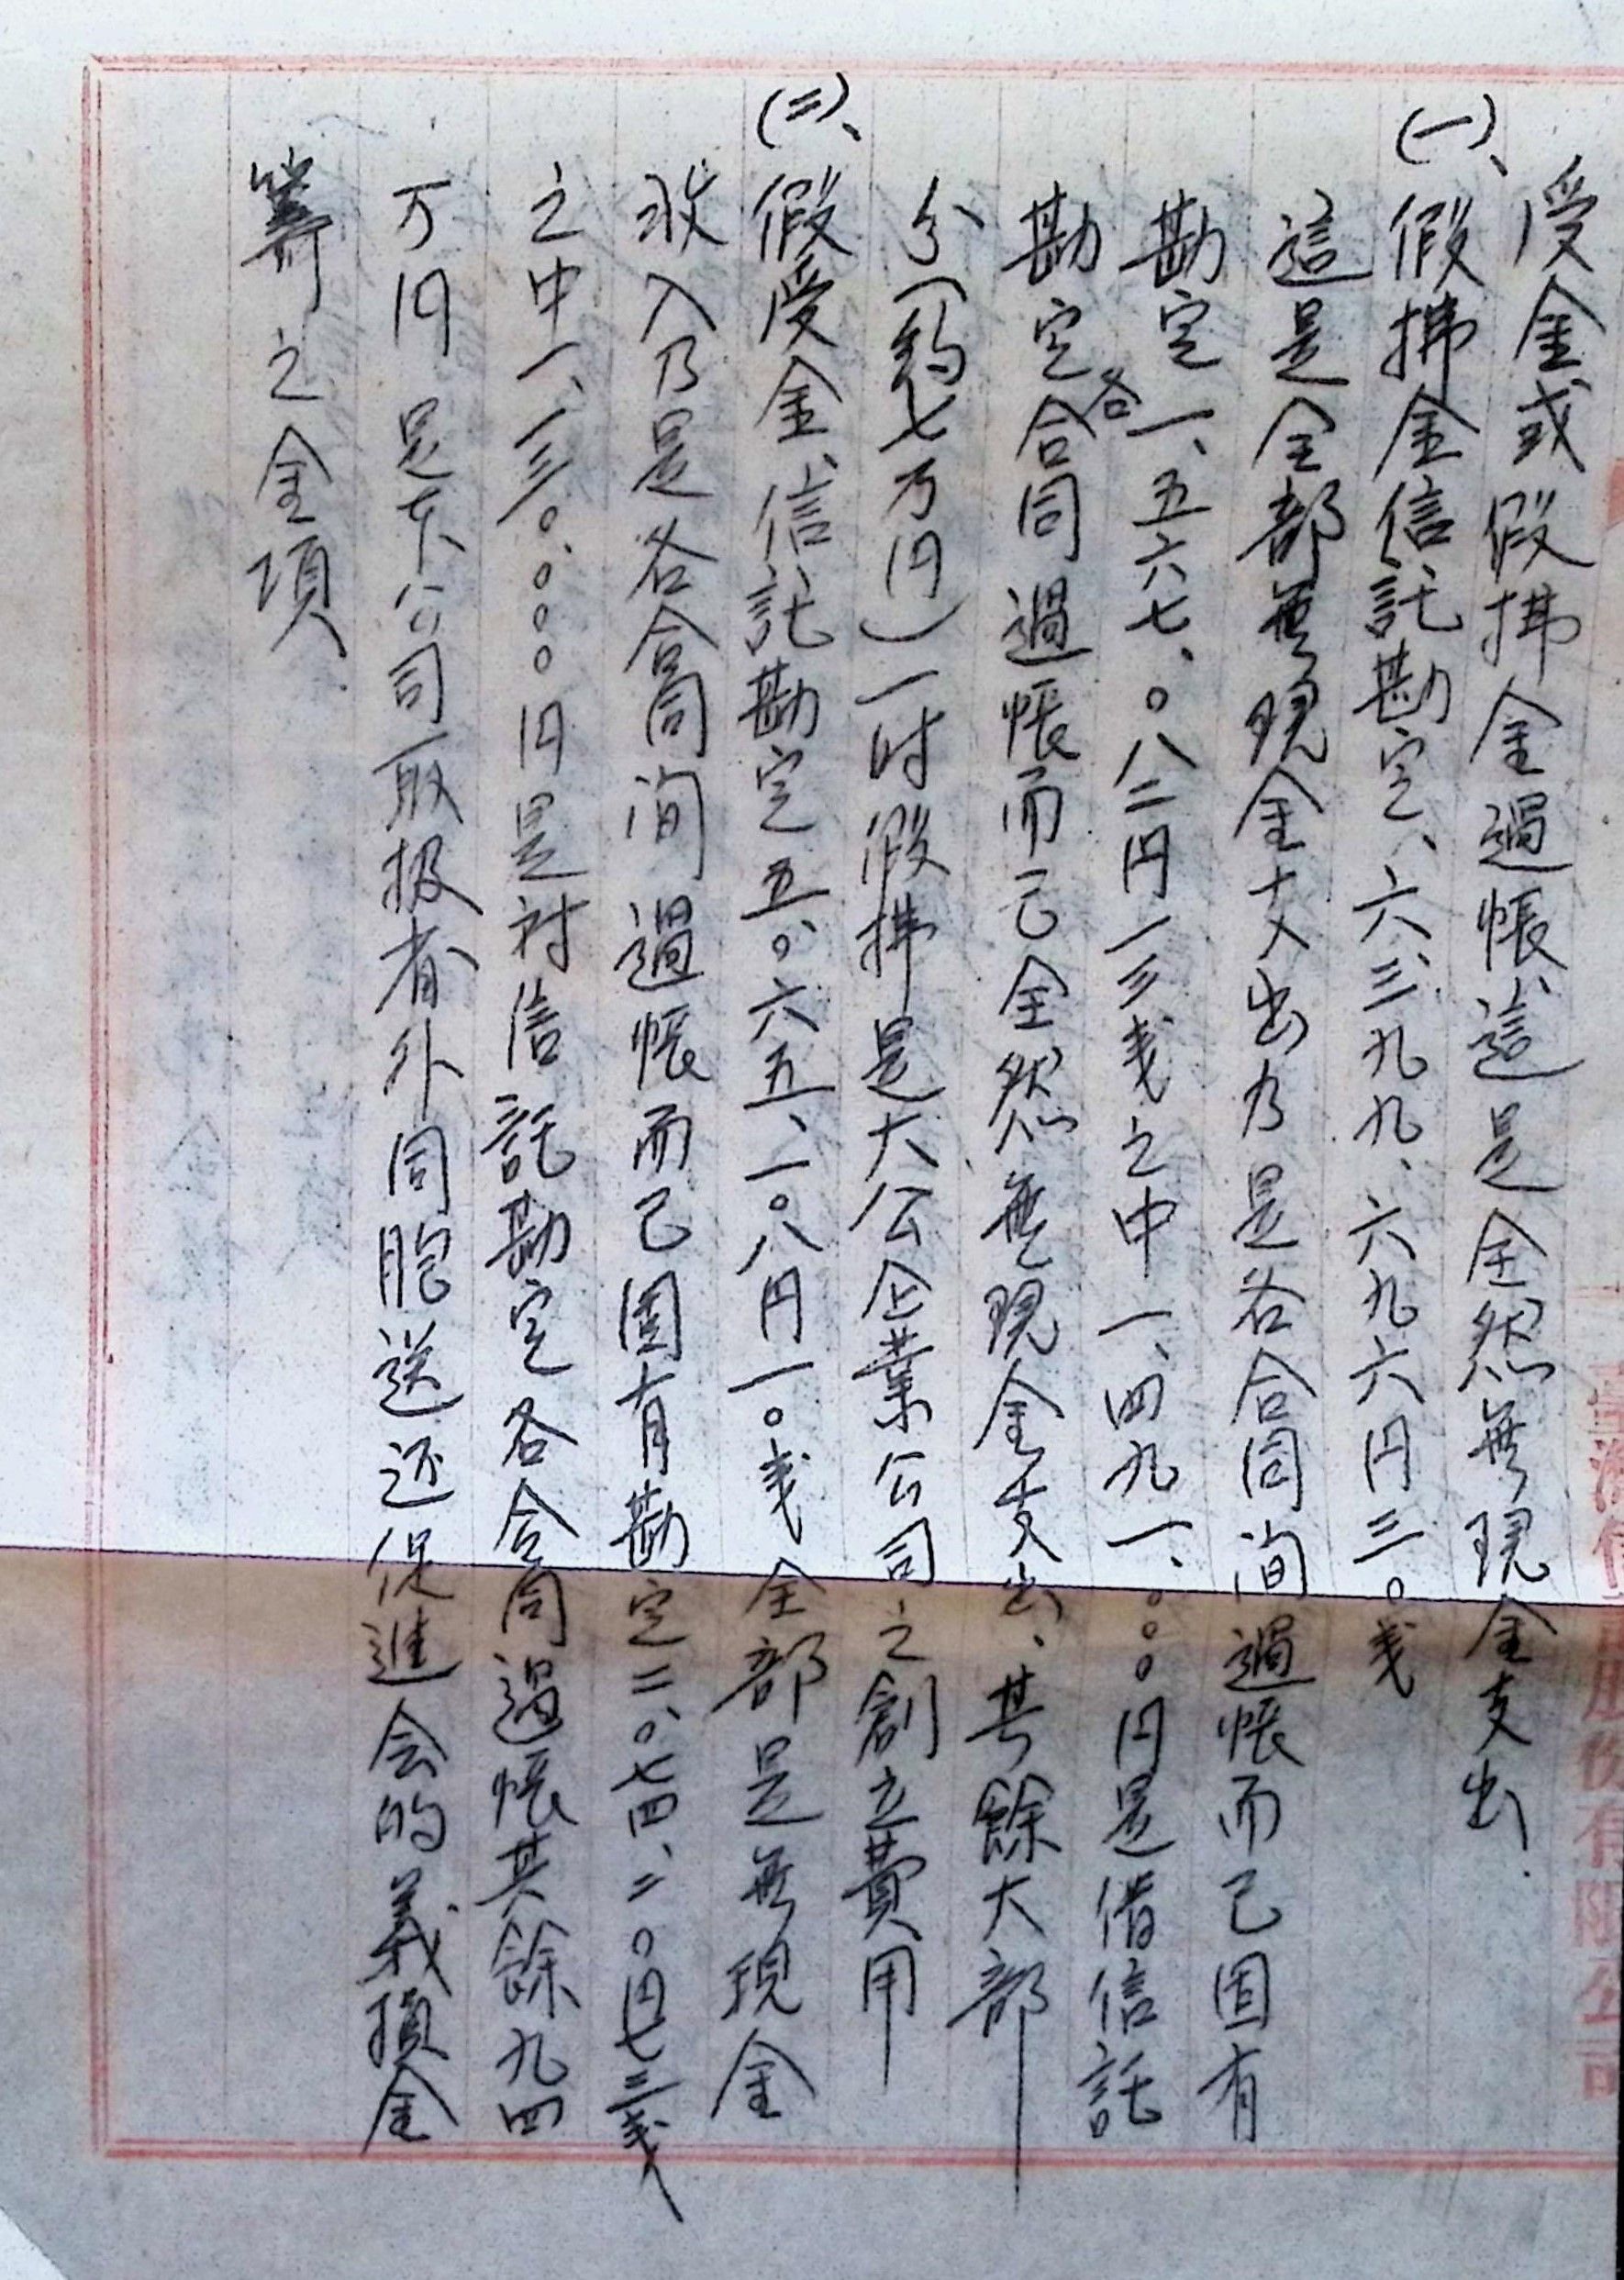 受金或假拂金過帳、這是全然無現金支出.
(一)、假拂金信託勘定、六、三九九、六九六円三〇戋
這是全部無現金支出乃是各合同間過帳而已固有
勘定一、五六七、〇八二円一三戋之中一、四九一、〇〇〇円是借信託
勘定各合同過帳而已全然無現金支出、其餘大部
分(約七万円)一時假拂是大公企業公司之創立費用
(二)、假受金、信託勘定五、〇六五、一〇八円一〇戋全部是無現金
收入乃是各合同間過帳而已固有勘定二、〇七四、二〇円七三戋
之中一、一三〇、〇〇〇円是対信託勘定各合同過帳其餘九四
万円是本公司取扱省外同胞送还促進会的義損金
等之金項.
台湾信託股份有限公司